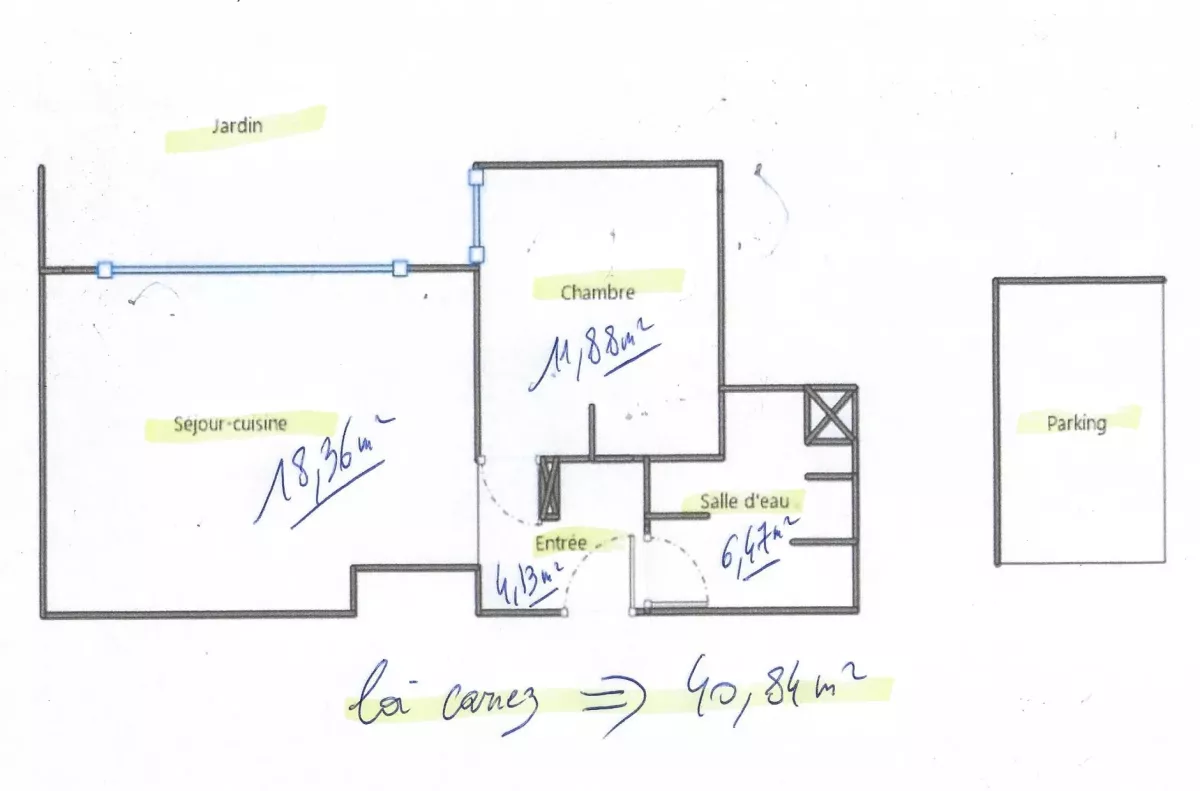 Jardin
Chambre
11,88m²
Séjour-cuisine
18,36m²
Parking
Salle d'eau
6,47m²
Entrée
4,13m²
loi carrez => 40,84m²